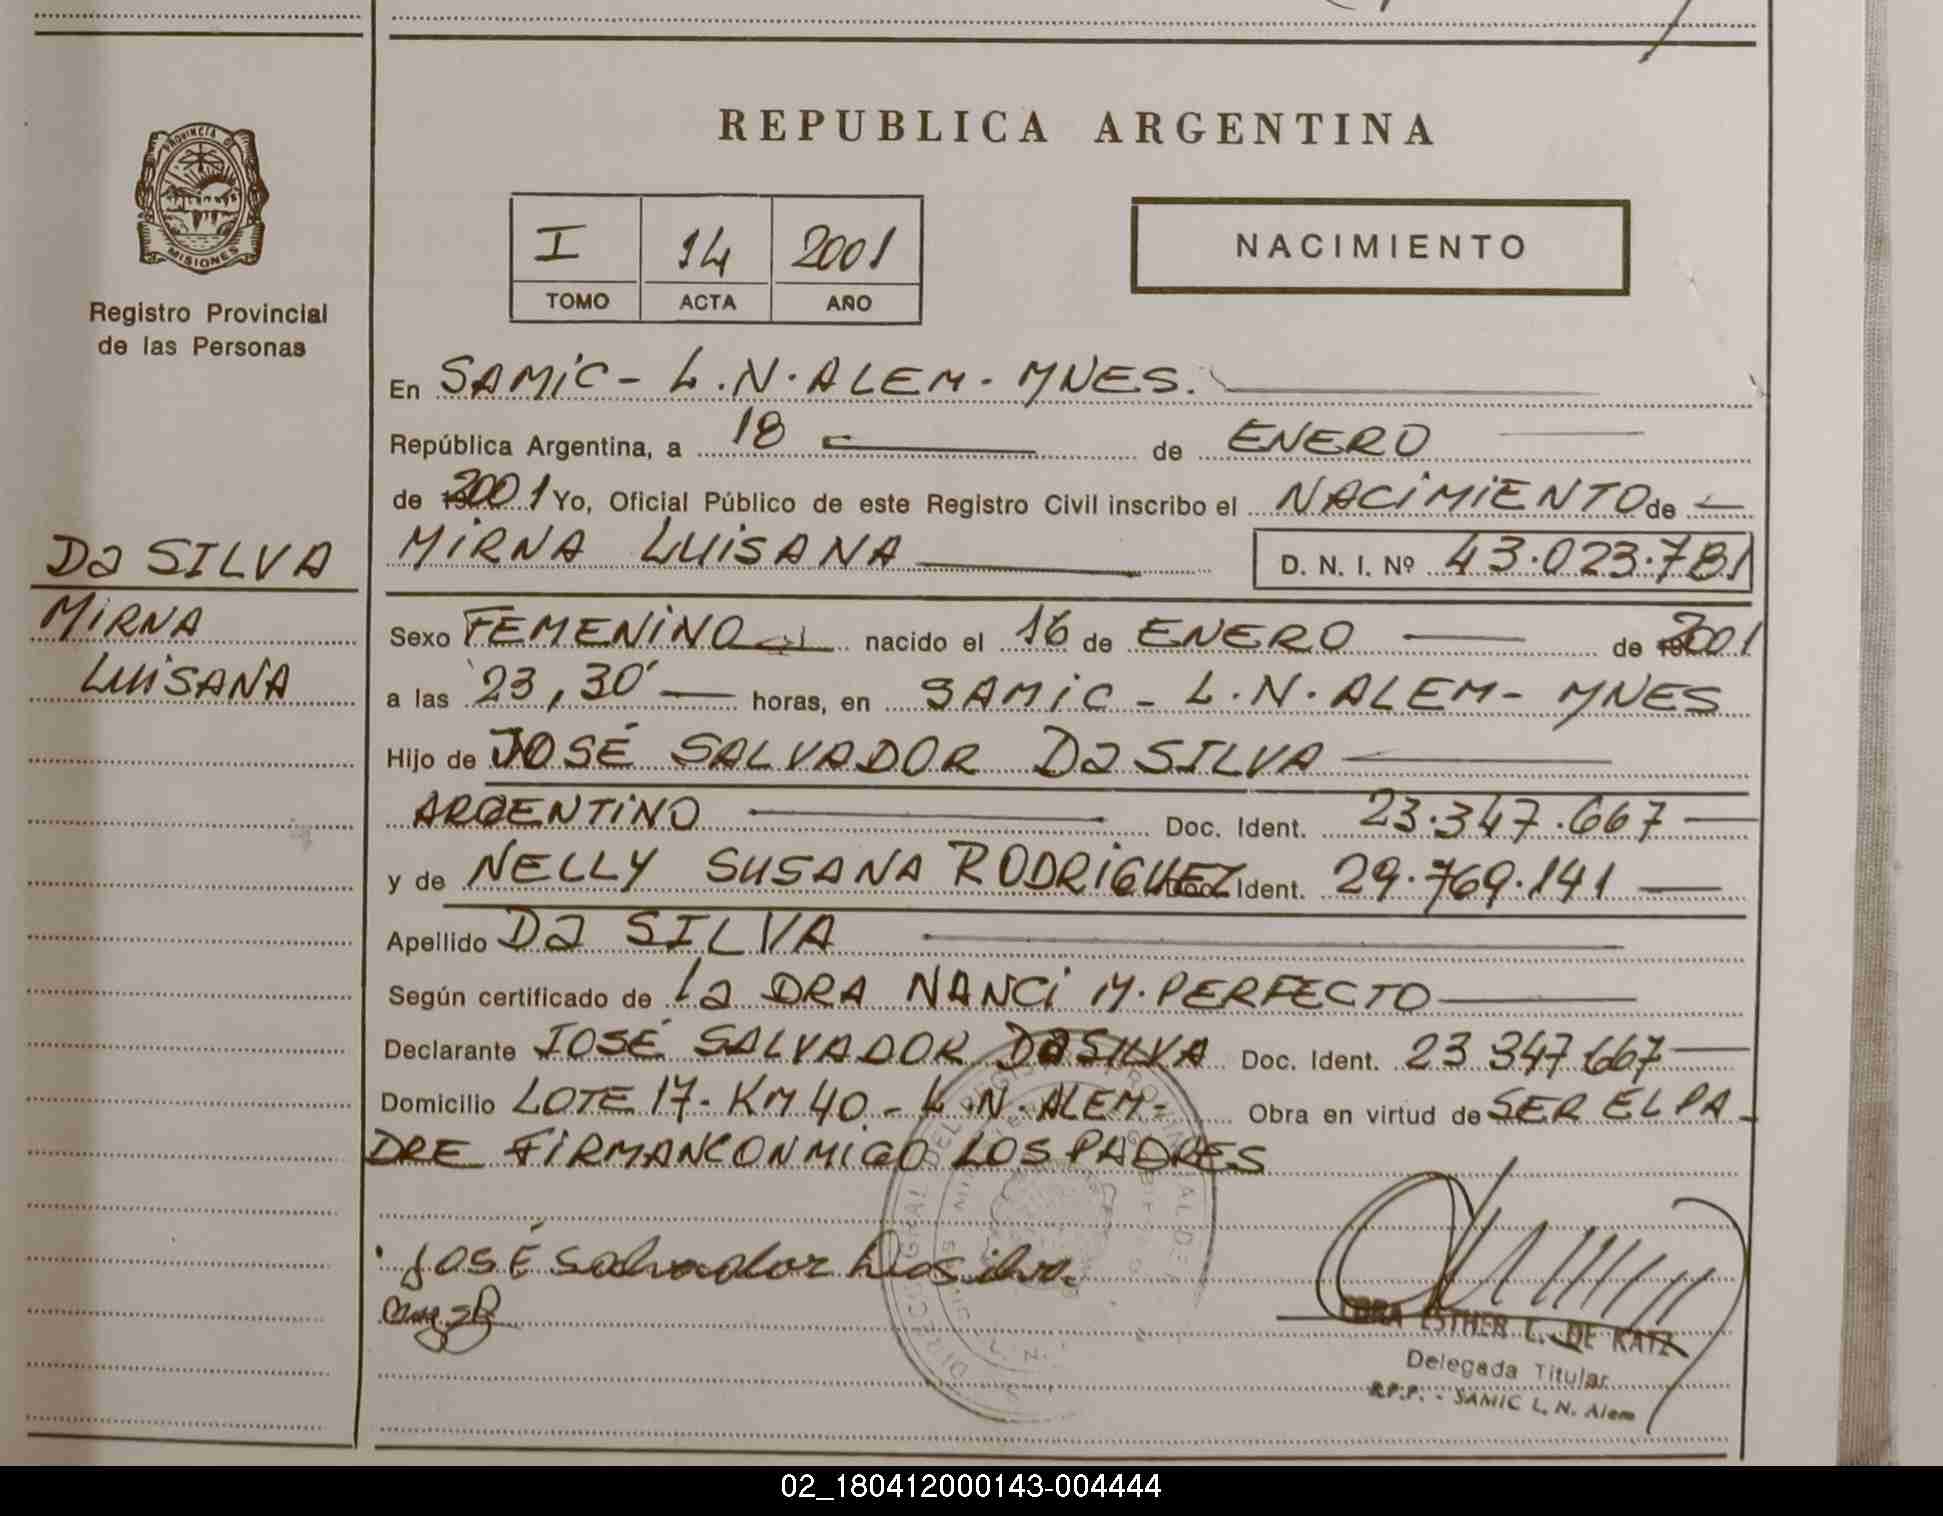 REPUBLICA ARGENTINA
PROVINCIA DE
MISIONES
Registro Provincial
de las Personas
I 14 2001
TOMO ACTA AÑO
NACIMIENTO
En SAMIC - L.N. ALEM - MNES.
República Argentina, a 18 de ENERO
de 2001 Yo, Oficial Público de este Registro Civil inscribo el NACIMIENTO de
MIRNA LUISANA D. N. I. Nº 43.023.781
Da SILVA
MIRNA
LUISANA
Sexo FEMENINO nacido el 16 de ENERO de 2001
a las 23,30 horas, en SAMIC - L.N. ALEM - MNES
Hijo de JOSÉ SALVADOR Da SILVA
ARGENTINO Doc. Ident. 23.347.667
y de NELLY SUSANA RODRIGUEZ Doc. Ident. 29.769.141
Apellido Da SILVA
Según certificado de La DRA NANCI M. PERFECTO
Declarante JOSÉ SALVADOR Da SILVA Doc. Ident. 23 347 667
Domicilio LOTE 17 - KM 40 - L.N. ALEM - Obra en virtud de SER EL PA-
DRE FIRMAN CONMIGO LOS PADRES
José Salvador Da silva
ESTHER L. DE KATZ
Delegada Titular
R.P.P. - SAMIC L. N. Alem
02_180412000143-004444